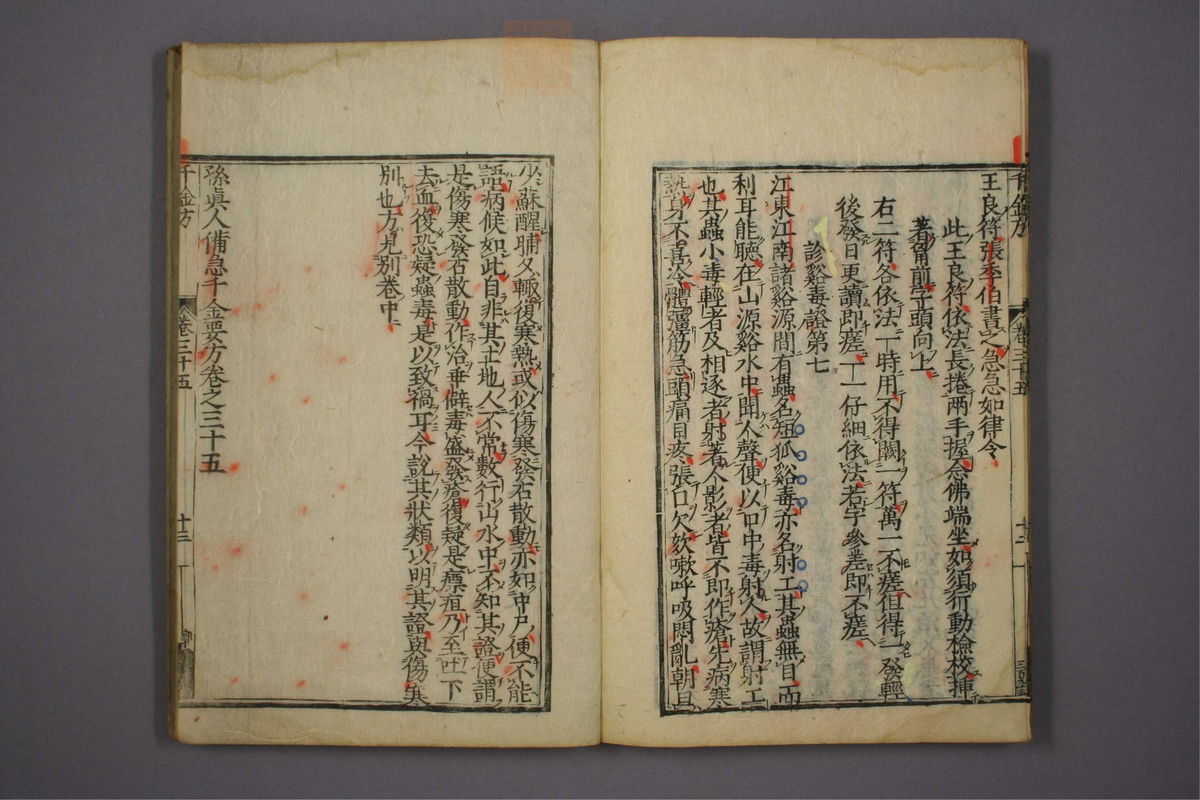 王良符張季伯書之急急如律令
此王良符依法長捲兩手握念佛端坐如須行動檢校插
著胷前字頭向上
右二符各依法一時用不得闕一符萬一不瘥但得一發輕
後發日更讀即瘥一一仔細依法若字參差即不瘥
診谿毒證第七
江東江南諸谿源間有蟲名短狐谿毒亦名射工其蟲無目而
利耳能聽在山源谿水中聞人聲便以口中毒射人故謂射工
也其蟲小毒輕者及相逐者射著人影者皆不即作瘡先病寒
熱身不喜冷體彊筋急頭痛目疼張口欠欬嗽呼吸悶亂朝旦
千金方
卷三十五
十二
少蘇醒晡夕輙復寒熱或似傷寒發石散動亦如中尸便不能
語病候如此自非其土地人不常數行山水中不知其證便謂
是傷寒發石散動作治乖僻毒盛發瘡復疑是瘭疽乃至吐下
去血復恐疑蟲毒是以致禍耳今說其狀類以明其證與傷寒
別也方見別卷中
孫眞人備急千金要方卷之三十五
千金方
卷三十五
十三